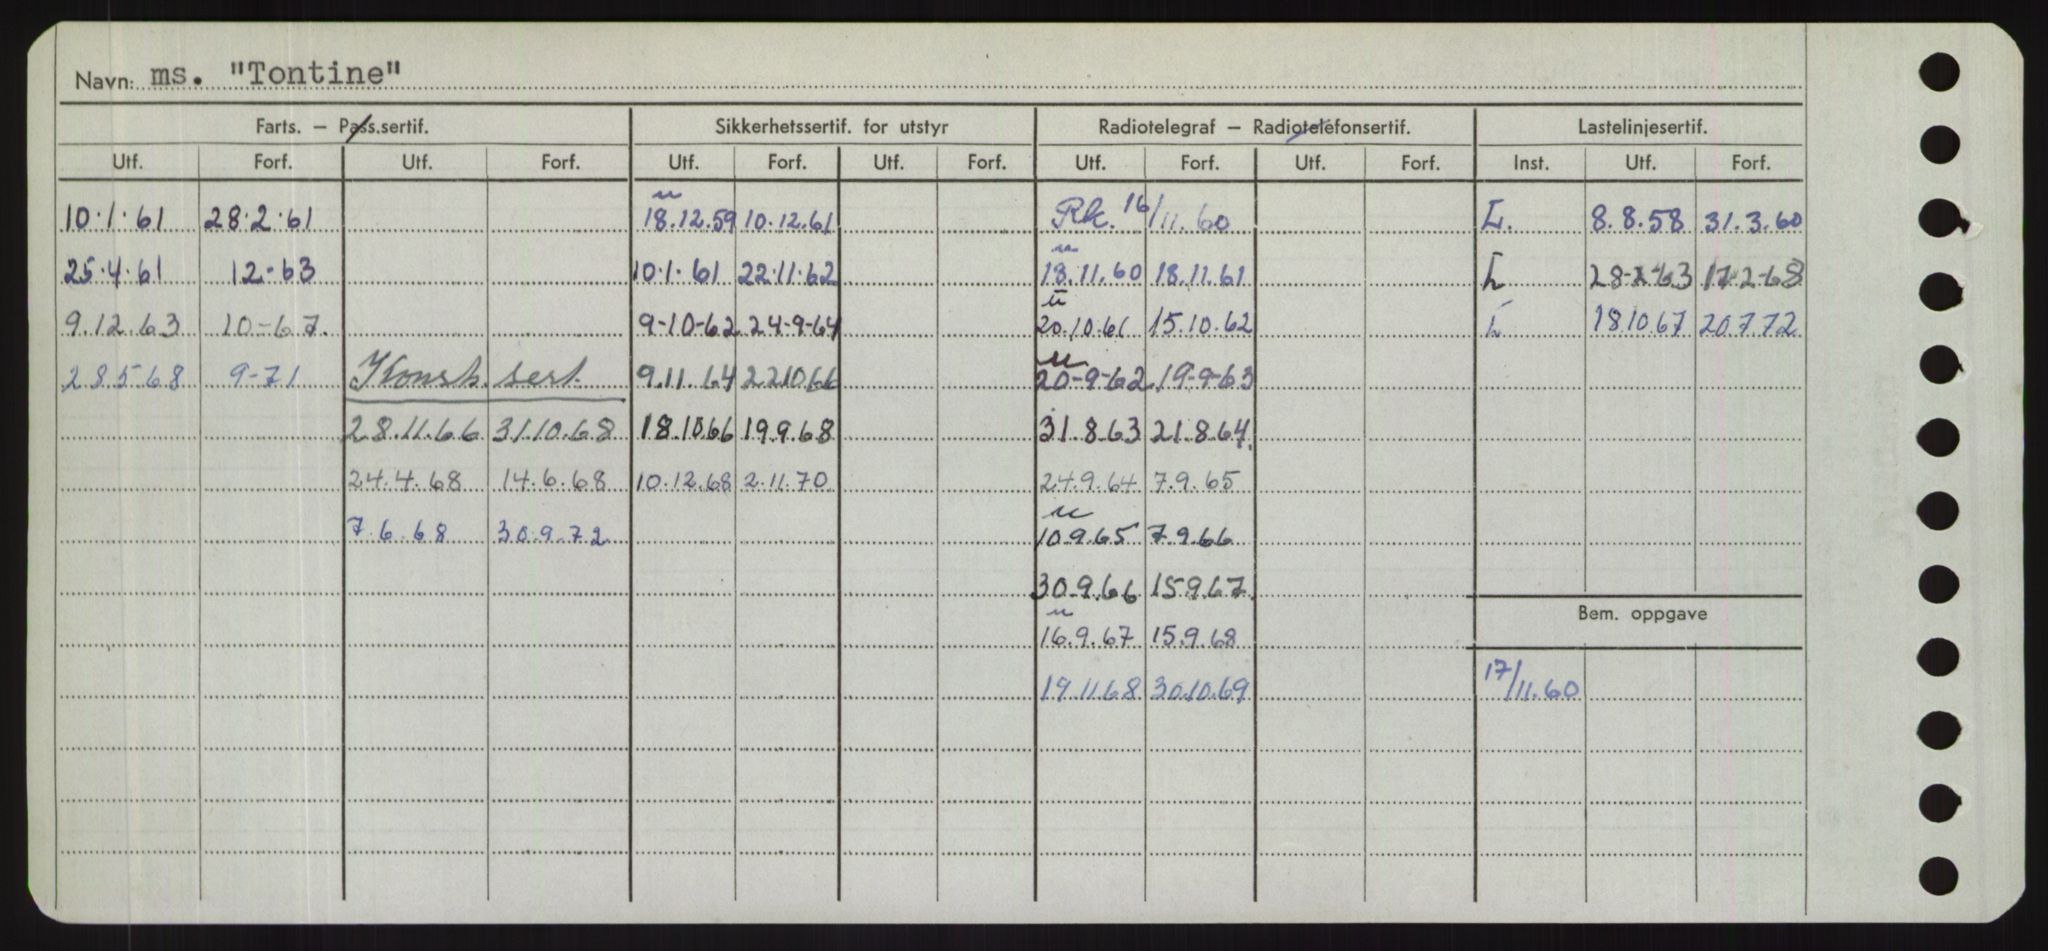 Navn: ms. "Tontine"
Farts. – Pass.sertif. Sikkerhetssertif. for utstyr Radiotelegraf – Radiotelefonsertif. Lastelinjesertif.
Utf. Forf. Utf. Forf. Utf. Forf. Utf. Forf. Utf. Forf. Utf. Forf. Inst. Utf. Forf.
10.1.61 28.2.61 u 18.12.59 10.12.61 Rk. 16/11.60 L. 8.8.58 31.3.60
25.4.61 12-63 10.1.61 22.11.62 u 18.11.60 18.11.61 L 28-2-63 17-2-68
9.12.63 10-67. 9-10-62 24-9-64 u 20.10.61 15.10.62 L 18.10.67 20.7.72
28.5.68 9-71 Konstr. sert. 9.11.64 22.10.66 u 20-9-62 19-9-63
28.11.66 31.10.68 18.10.66 19.9.68 31.8.63 21.8.64.
24.4.68 14.6.68 10.12.68 2.11.70 24.9.64 7.9.65
7.6.68 30.9.72 u 10.9.65 7.9.66
30.9.66 15.9.67.
Bem. oppgave
u 16.9.67 15.9.68
19.11.68 30.10.69 17/11.60